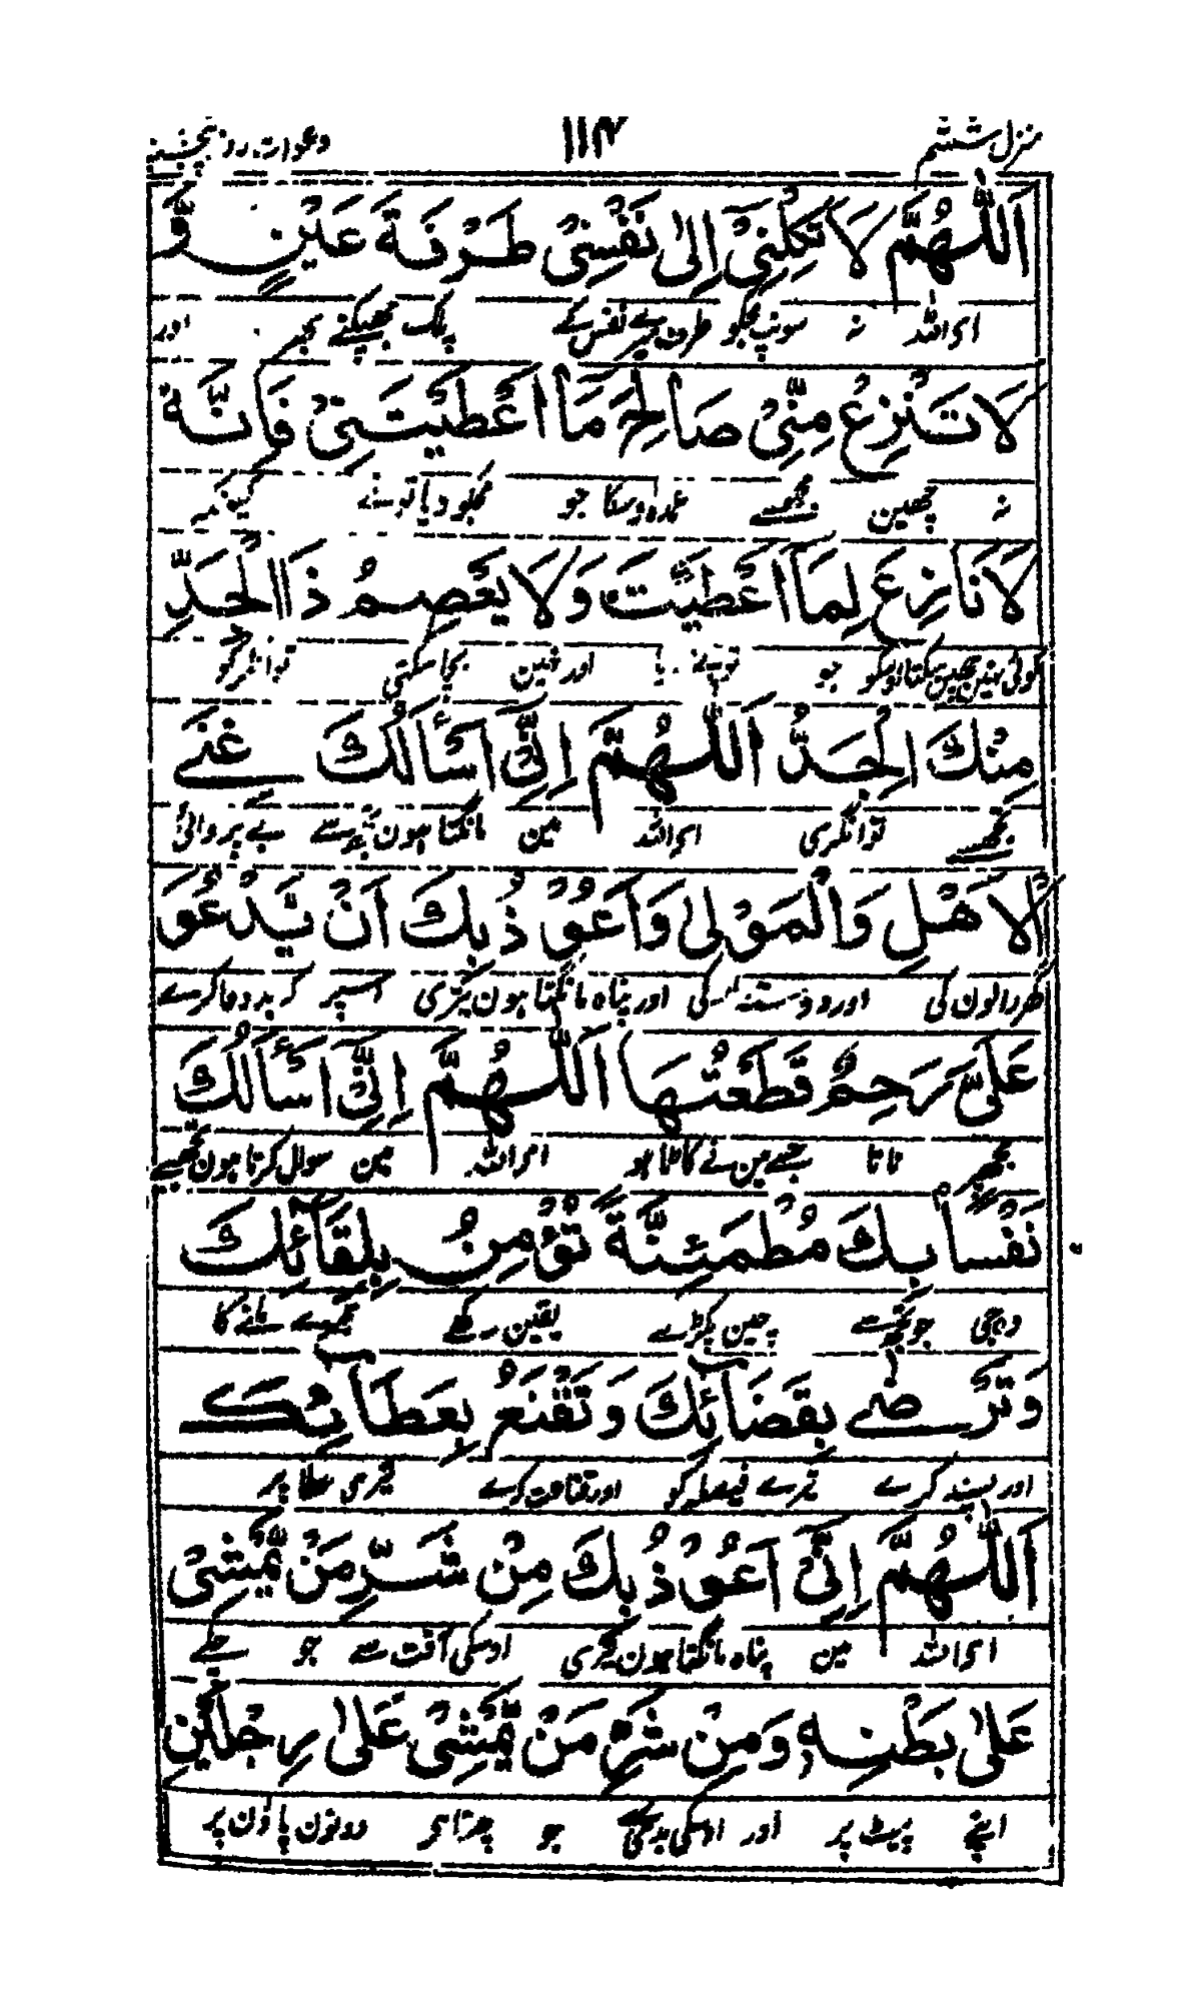 منزل ششم ۱۱۴ دعوات روز پنجشنبہ
اَللّٰهُمَّ لَا تَكِلْنِیْ اِلٰی نَفْسِیْ طَرْفَةَ عَيْنٍ وَّ
ای اللہ نہ سونپ مجکو طرف میرے نفس کے پلک جھپکنے بھر اور
لَا تَنْزِعْ مِنِّیْ صَالِحَ مَا اَعْطَيْتَنِیْ فَاِنَّهٗ
نہ چھین مجھسے عمدہ اوسکا جو مجکو دیا تونے کیونکہ
لَا نَازِعَ لِمَا اَعْطَيْتَ وَلَا يَعْصِمُ ذَا الْجَدِّ
کوئی نہین چھین سکتا اوسکو جو تونے دیا اور نہین بچا سکتی توانگر کو
مِنْكَ الْجَدُّ اَللّٰهُمَّ اِنِّیْ اَسْأَلُكَ غِنَے
تجھسے توانگری ای اللہ مین مانگتا ہون تجھسے بے پروائی
الْاَهْلِ وَالْمَوْلٰی وَاَعُوْذُ بِكَ اَنْ يَّدْعُوَ
گھر والون کی اور دوستدار کی اور پناہ مانگتا ہون تیری اسپر کہ بددعا کرے
عَلَیَّ رَحِمٌ قَطَعْتُهَا اَللّٰهُمَّ اِنِّیْ اَسْأَلُكَ
مجھپر ناتا جسے مین نے کاٹا ہو ای اللہ مین سوال کرتا ہون تجھسے
نَفْسًا بِكَ مُطْمَئِنَّةً تُؤْمِنُ بِلِقَآئِكَ
وہ جی جو تجھسے چین پکڑے یقین رکھے تیرے ملنے کا
وَتَرْضٰے بِقَضَآئِكَ وَتَقْنَعُ بِعَطَآئِكَ
اور پسند کرے تیرے فیصلہ کو اور قناعت کرے تیری عطا پر
اَللّٰهُمَّ اِنِّیْ اَعُوْذُ بِكَ مِنْ شَرِّ مَنْ يَّمْشِیْ
ای اللہ مین پناہ مانگتا ہون تیری اوسکی آفت سے جو چلے
عَلٰی بَطْنِهٖ وَمِنْ شَرِّ مَنْ يَّمْشِیْ عَلٰی رِجْلَيْنِ
اپنے پیٹ پر اور اوسکی بدی سے جو چلتا ہی دونون پاؤن پر